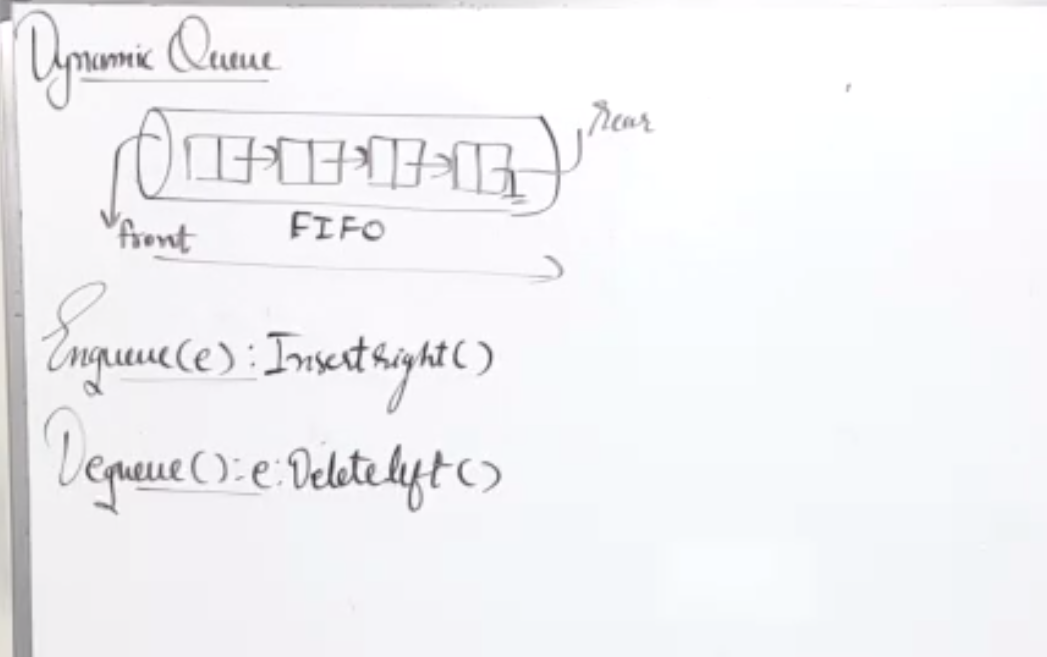 Dynamic Queue
rear
front
FIFO
Enqueue(e): Insertright()
Dequeue():e: Deleteleft()